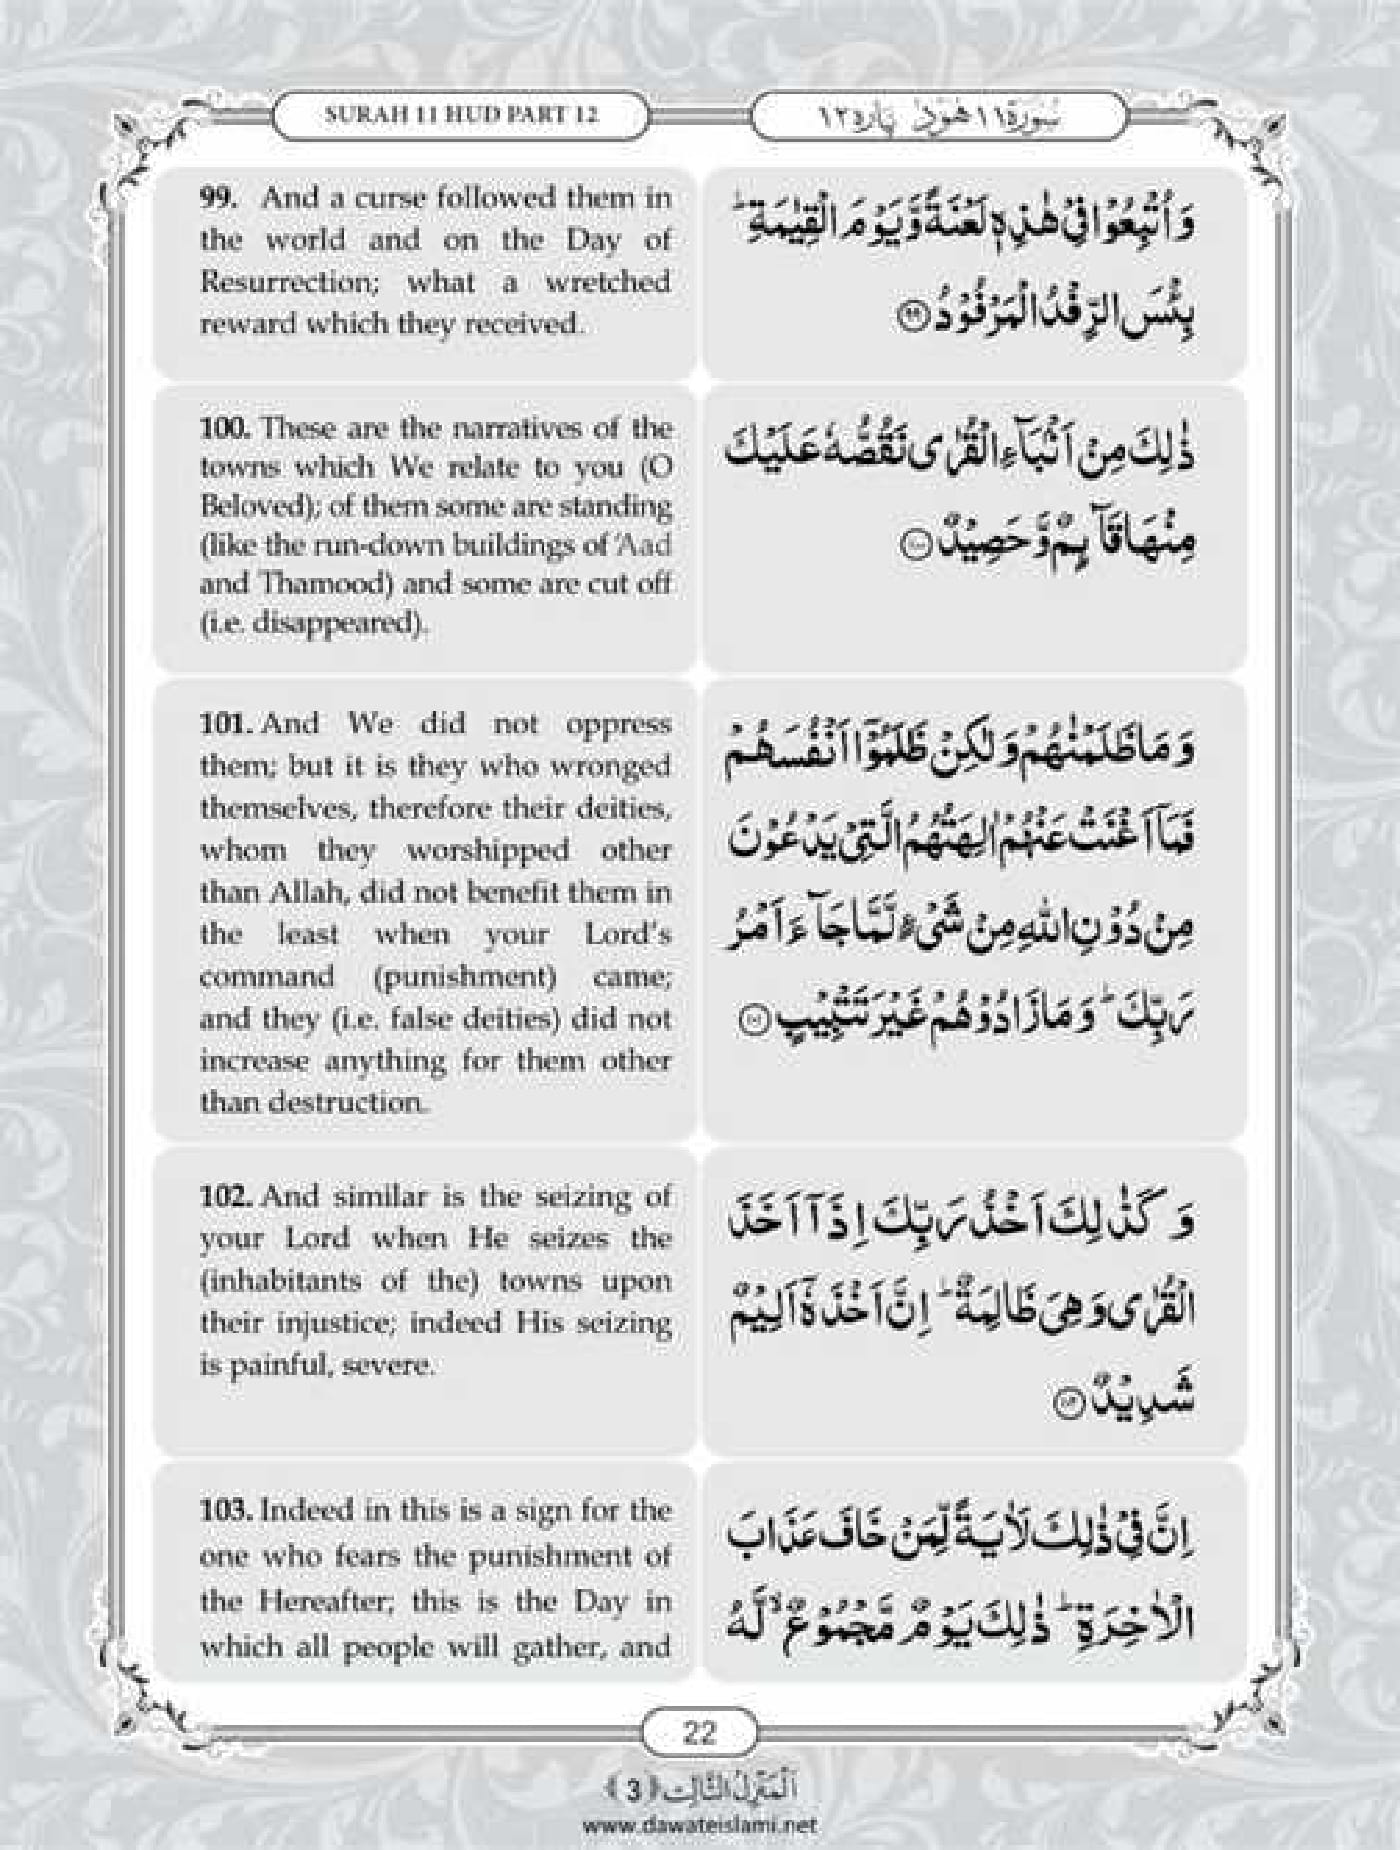 SURAH 11 HUD PART 12
سُوْرَةُ ١١ هُوْد پاره ١٢
99. And a curse followed them in
the world and on the Day of
Resurrection; what a wretched
reward which they received.
وَ اُتْبِعُوْا فِیْ هٰذِهٖ لَعْنَةً وَّ یَوْمَ الْقِیٰمَةِ ؕ
بِئْسَ الرِّفْدُ الْمَرْفُوْدُ ﴿۹۹﴾
100. These are the narratives of the
towns which We relate to you (O
Beloved); of them some are standing
(like the run-down buildings of ‘Aad
and Thamood) and some are cut off
(i.e. disappeared).
ذٰلِكَ مِنْ اَنْۢبَآءِ الْقُرٰى نَقُصُّهٗ عَلَیْكَ
مِنْهَا قَآىِٕمٌ وَّ حَصِیْدٌ ﴿۱۰۰﴾
101. And We did not oppress
them; but it is they who wronged
themselves, therefore their deities,
whom they worshipped other
than Allah, did not benefit them in
the least when your Lord’s
command (punishment) came;
and they (i.e. false deities) did not
increase anything for them other
than destruction.
وَ مَا ظَلَمْنٰهُمْ وَ لٰكِنْ ظَلَمُوْۤا اَنْفُسَهُمْ
فَمَاۤ اَغْنَتْ عَنْهُمْ اٰلِهَتُهُمُ الَّتِیْ یَدْعُوْنَ
مِنْ دُوْنِ اللّٰهِ مِنْ شَیْءٍ لَّمَّا جَآءَ اَمْرُ
رَبِّكَ ؕ وَ مَا زَادُوْهُمْ غَیْرَ تَتْبِیْبٍ ﴿۱۰۱﴾
102. And similar is the seizing of
your Lord when He seizes the
(inhabitants of the) towns upon
their injustice; indeed His seizing
is painful, severe.
وَ كَذٰلِكَ اَخْذُ رَبِّكَ اِذَاۤ اَخَذَ
الْقُرٰى وَ هِیَ ظَالِمَةٌ ؕ اِنَّ اَخْذَهٗۤ اَلِیْمٌ
شَدِیْدٌ ﴿۱۰۲﴾
103. Indeed in this is a sign for the
one who fears the punishment of
the Hereafter; this is the Day in
which all people will gather, and
اِنَّ فِیْ ذٰلِكَ لَاٰیَةً لِّمَنْ خَافَ عَذَابَ
الْاٰخِرَةِ ؕ ذٰلِكَ یَوْمٌ مَّجْمُوْعٌ ۙ لَّهُ
22
اَلْمَنْزِلُ الثَّالِث ﴿3﴾
www.dawateislami.net